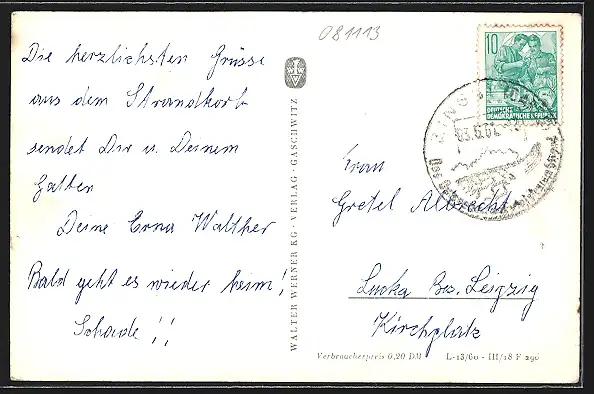 081113
Die herzlichsten Grüsse
aus dem Strandkorb
sendet Dir u. Deinem
Gatten
Deine Erna Walther
Bald geht es wieder heim!
Schade!!
WALTER WERNER KG · VERLAG · GASCHWITZ
10
DEUTSCHE
DEMOKRATISCHE REPUBLIK
Frau
Gretel Albrecht
Lucka Bez. Leipzig
Kirchplatz
Verbraucherpreis 0,20 DM L-13/60 - III/18 F 296